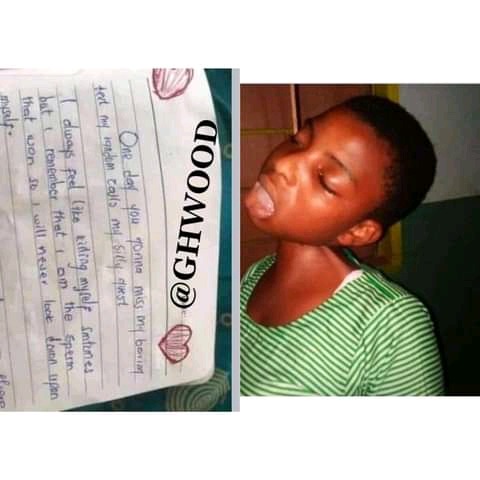 One day you gonna miss my boring
text my random calls my silly quest
I always feel like myself smtimes
but I remember that I am the sperm
that won so I will never look down upon
myself.
@GHWOOD